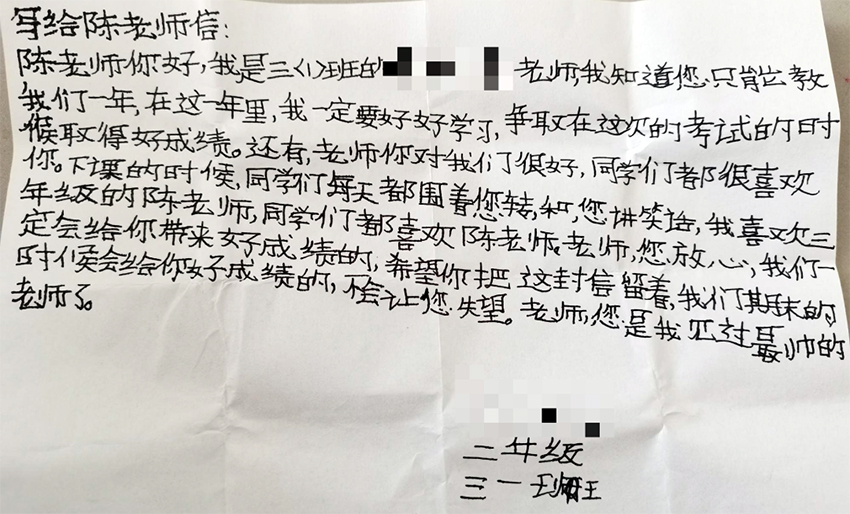 写给陈老师信：
陈老师你好，我是三〈1〉班的 老师，我知道您只能教
我们一年，在这一年里，我一定要好好学习，争取在这次的考试的时
候取得好成绩。还有，老师你对我们很好，同学们都很喜欢
你。下课的时候，同学们每天都围着您转，和您讲笑话，我喜欢三
年级的陈老师，同学们都喜欢陈老师。老师，您放心，我们一
定会给你带来好成绩的，希望你把这封信留着，我们期末的
时候会给你好成绩的，不会让您失望。老师，您是我见过最帅的
老师了。
二年级
三一班